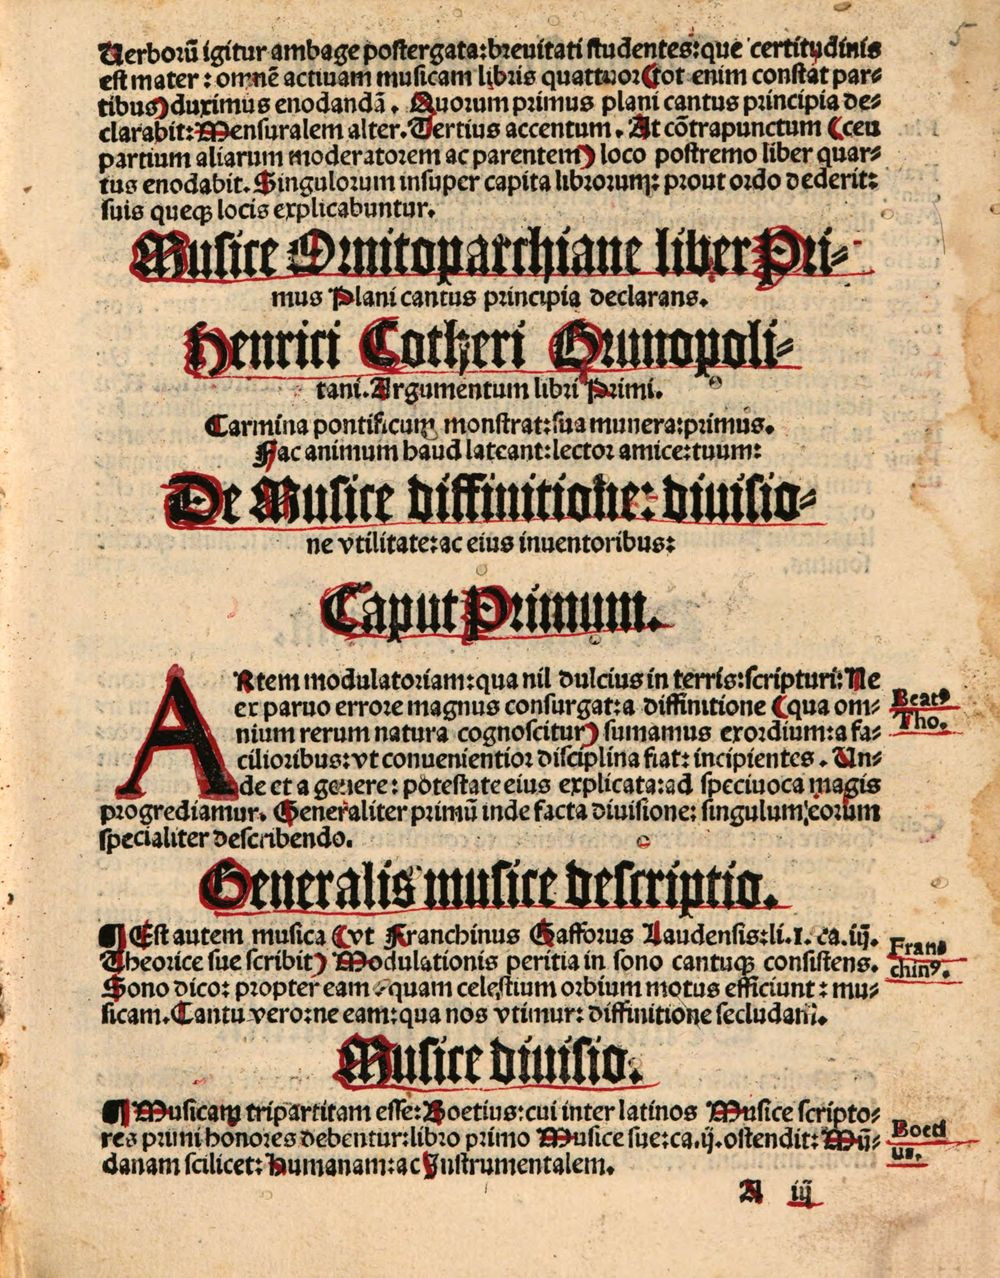 5
Uerborū igitur ambage postergata: breuitati studentes: que certitudinis
est mater: omnē actiuam musicam libris quattuor (tot enim constat par⸗
tibus) duximus enodandā. Quorum primus plani cantus principia de⸗
clarabit: Mensuralem alter. Tertius accentum. At cōtrapunctum (ceu
partium aliarum moderatorem ac parentem) loco postremo liber quar⸗
tus enodabit. Singulorum insuper capita librorumꝫ: prout ordo dederit:
suis queqꝫ locis explicabuntur.
Musice Ornitoparchiane liber Pri⸗
mus Plani cantus principia declarans.
Henrici Cotheri Grunopoli⸗
tani. Argumentum libri Primi.
Carmina pontificum monstrat: sua munera: primus.
Fac animum haud lateant: lector amice: tuum:
De Musice diffinitione: diuisio⸗
ne vtilitate: ac eius inuentoribus:
Caput Primum.
ARtem modulatoriam: qua nil dulcius in terris: scripturi: Ne
ex paruo errore magnus consurgat: a diffinitione (qua om⸗
Beatꝰ
nium rerum natura cognoscitur) sumamus exordium: a fa⸗
Tho.
cilioribus: vt conuenientior disciplina fiat: incipientes. Un⸗
de et a genere: potestate eius explicata: ad speciuoca magis
progrediamur. Generaliter primū inde facta diuisione: singulum eorum
specialiter describendo.
Generalis musice descriptio.
¶ Est autem musica (vt Franchinus Gafforus Laudensis: li. 1. ca. iij.
Fran⸗
Theorice sue scribit) Modulationis peritia in sono cantuqꝫ consistens.
chinꝰ.
Sono dico: propter eam quam celestium orbium motus efficiunt: mu⸗
sicam. Cantu vero: ne eam: qua nos vtimur: diffinitione secludam.
Musice diuisio.
¶ Musicam tripartitam esse: Boetius: cui inter latinos Musice scripto⸗
res primi honores debentur: libro primo Musice sue: ca. ij. ostendit: Mū⸗
Boeti
us.
danam scilicet: humanam: ac Instrumentalem.
A iij